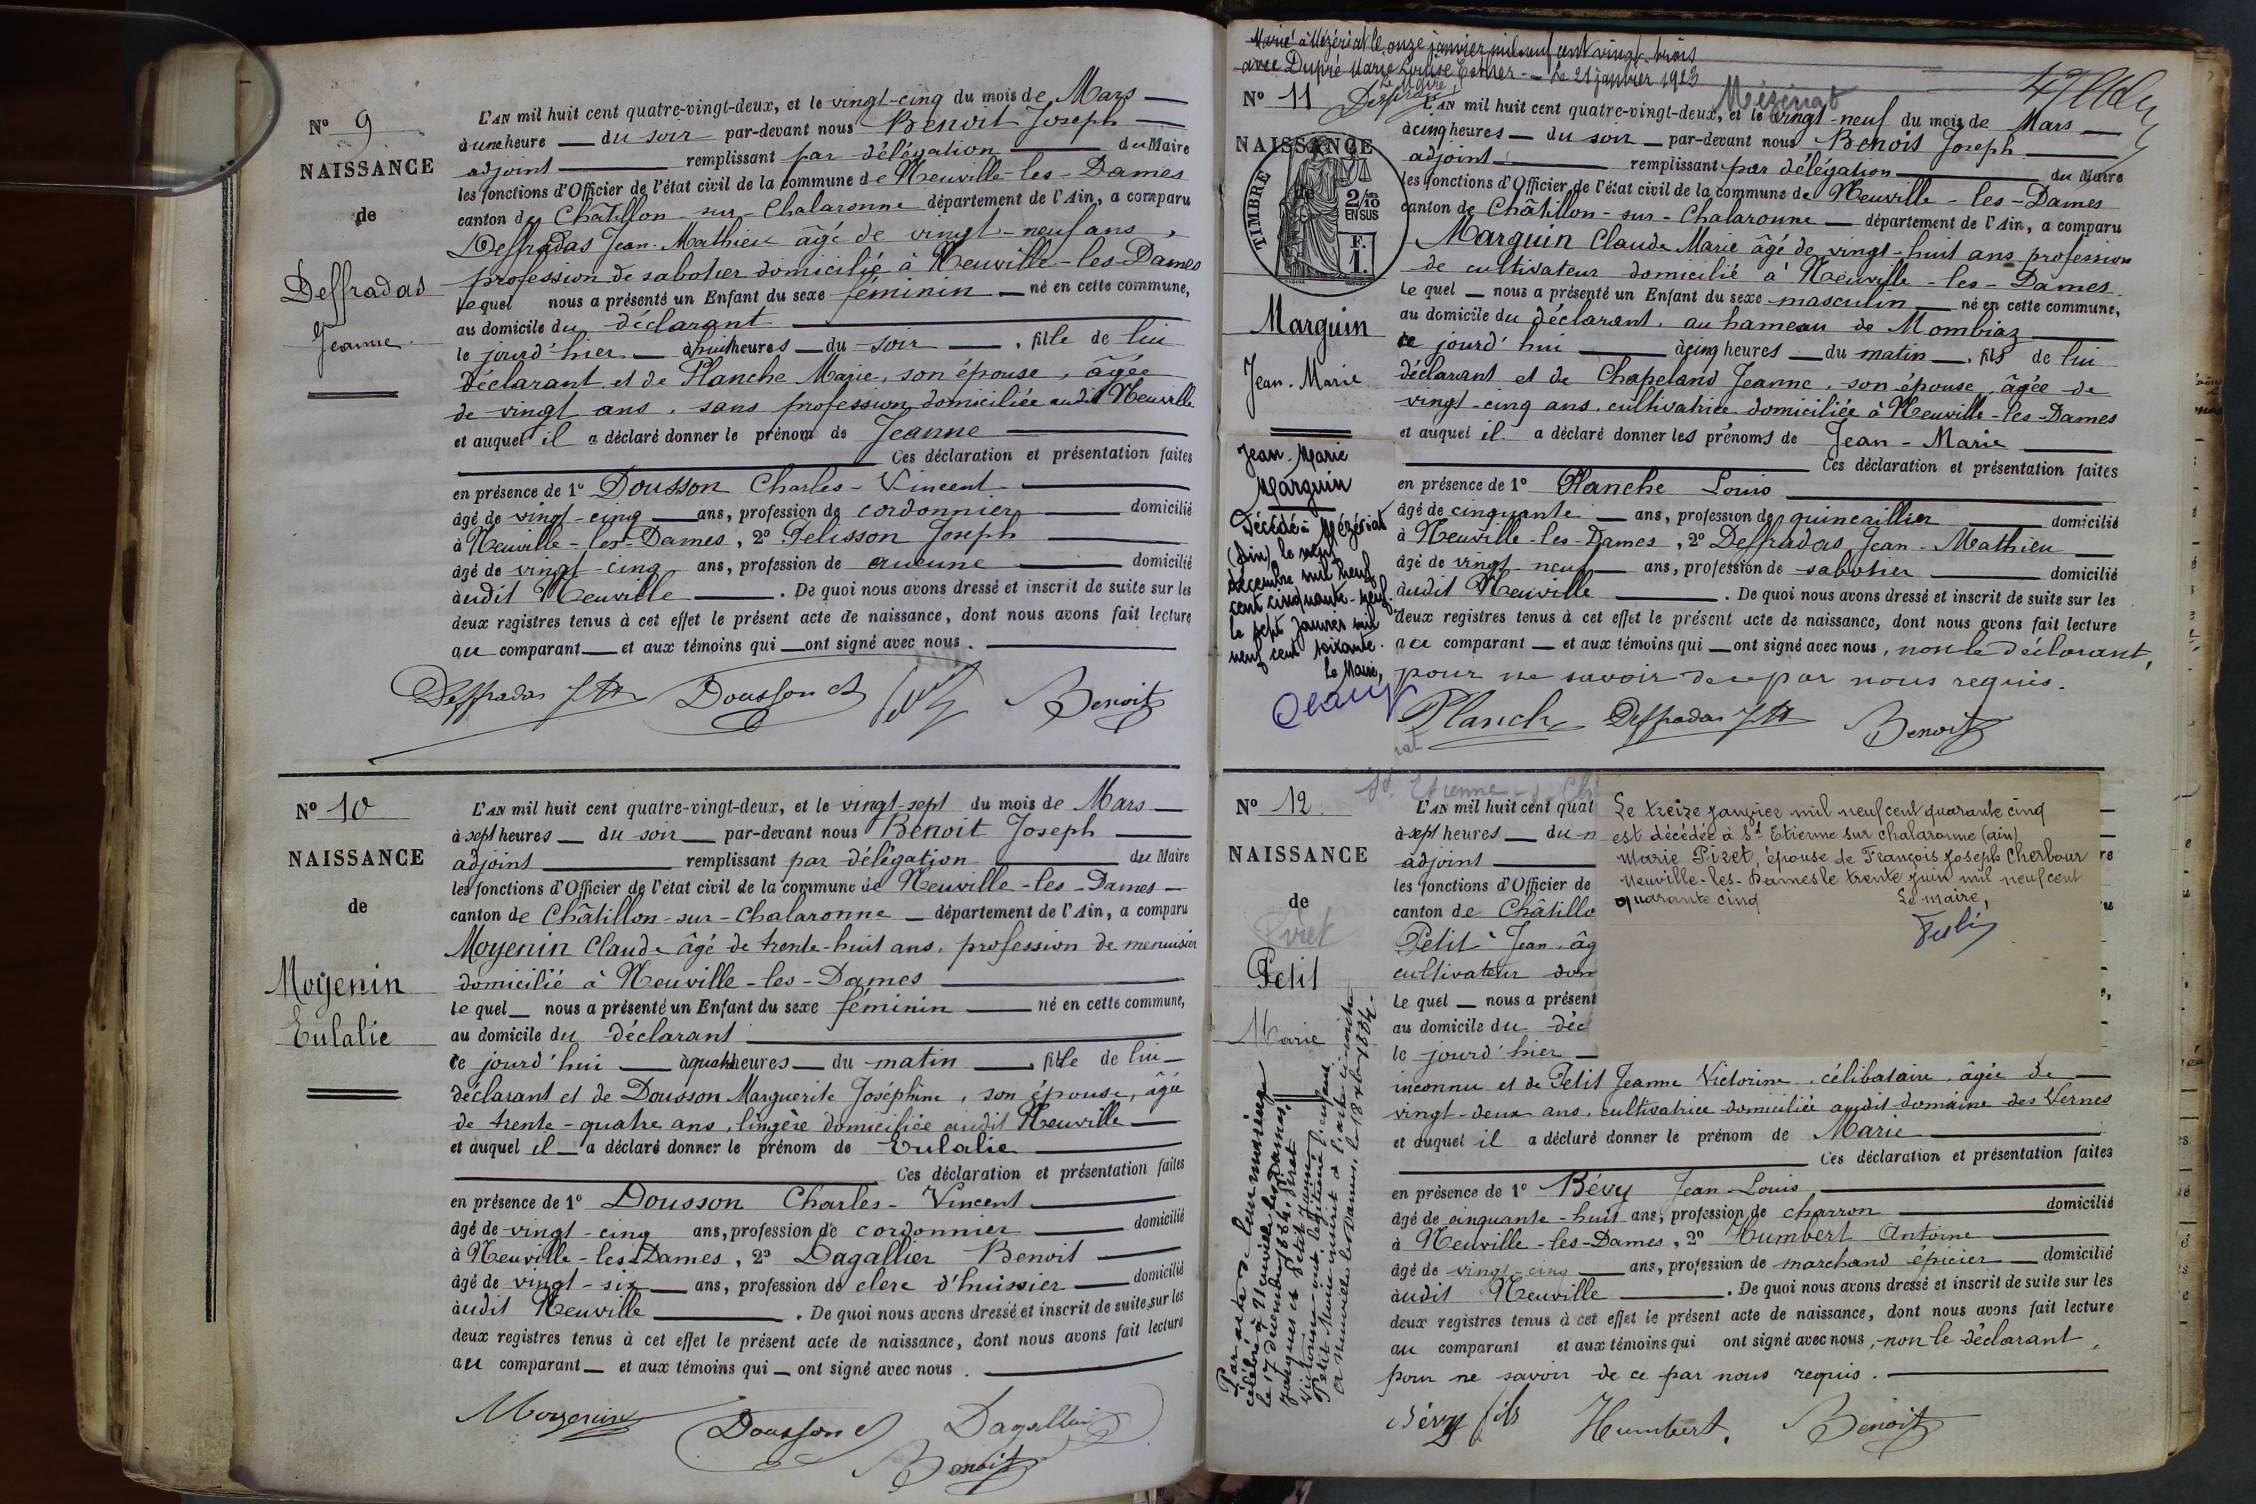 N° 9
NAISSANCE
de
Deffradas
Jeanne
L'AN mil huit cent quatre-vingt-deux, et le vingt-cinq du mois de Mars
à une heure du soir par-devant nous Benoit Joseph
adjoint remplissant par délégation du Maire
les fonctions d'Officier de l'état civil de la commune de Neuville-les-Dames
canton de Châtillon-sur-Chalaronne département de l'Ain, a comparu
Deffradas Jean-Mathieu âgé de vingt-neuf ans,
profession de sabotier domicilié à Neuville-les-Dames
lequel nous a présenté un Enfant du sexe féminin né en cette commune,
au domicile du déclarant
le jourd'hier à huit heures du soir, fille de lui
déclarant et de Planche Marie, son épouse, âgée
de vingt ans, sans profession domiciliée audit Neuville
et auquel il a déclaré donner le prénom de Jeanne
Ces déclaration et présentation faites
en présence de 1° Dousson Charles-Vincent
âgé de vingt-cinq ans, profession de cordonnier domicilié
à Neuville-les-Dames, 2° Pelisson Joseph
âgé de vingt-cinq ans, profession de aucune domicilié
audit Neuville. De quoi nous avons dressé et inscrit de suite sur les
deux registres tenus à cet effet le présent acte de naissance, dont nous avons fait lecture
au comparant et aux témoins qui ont signé avec nous.
Deffradas Dousson Benoit
N° 10
NAISSANCE
de
Moyenin
Eulalie
L'AN mil huit cent quatre-vingt-deux, et le vingt-sept du mois de Mars
à sept heures du soir par-devant nous Benoit Joseph
adjoint remplissant par délégation du Maire
les fonctions d'Officier de l'état civil de la commune de Neuville-les-Dames
canton de Châtillon-sur-Chalaronne département de l'Ain, a comparu
Moyenin Claude âgé de trente-huit ans, profession de menuisier
domicilié à Neuville-les-Dames
lequel nous a présenté un Enfant du sexe féminin né en cette commune,
au domicile du déclarant
ce jourd'hui à quatre heures du matin, fille de lui
déclarant et de Dousson Marguerite Joséphine, son épouse, âgée
de trente-quatre ans, lingère domiciliée audit Neuville
et auquel il a déclaré donner le prénom de Eulalie
Ces déclaration et présentation faites
en présence de 1° Dousson Charles-Vincent
âgé de vingt-cinq ans, profession de cordonnier domicilié
à Neuville-les-Dames, 2° Dagallier Benoit
âgé de vingt-six ans, profession de clerc d'huissier domicilié
audit Neuville. De quoi nous avons dressé et inscrit de suite sur les
deux registres tenus à cet effet le présent acte de naissance, dont nous avons fait lecture
au comparant et aux témoins qui ont signé avec nous.
Moyenin Dousson Dagallier
Benoit
Marié à Mézériat le onze janvier mil neuf cent vingt-trois
avec Dupré Marie Louise Esther - Le 21 janvier 1923
Le Maire
Mézériat
N° 11
NAISSANCE
de
TIMBRE
2/10
EN SUS
F.
1.
Marguin
Jean-Marie
Jean-Marie
Marguin
Décédé à Mézériat
(Ain) le neuf
décembre mil neuf
cent cinquante-neuf.
le sept janvier mil
neuf cent soixante.
le Maire,
L'AN mil huit cent quatre-vingt-deux, et le vingt-neuf du mois de Mars
à cinq heures du soir par-devant nous Benoit Joseph
adjoint remplissant par délégation du Maire
les fonctions d'Officier de l'état civil de la commune de Neuville-les-Dames
canton de Châtillon-sur-Chalaronne département de l'Ain, a comparu
Marguin Claude Marie âgé de vingt-huit ans profession
de cultivateur domicilié à Neuville-les-Dames.
lequel nous a présenté un Enfant du sexe masculin né en cette commune,
au domicile du déclarant, au hameau de Mombiaz
ce jourd'hui à cinq heures du matin, fils de lui
déclarant et de Chapeland Jeanne, son épouse, âgée de
vingt-cinq ans, cultivatrice domiciliée à Neuville-les-Dames
et auquel il a déclaré donner les prénoms de Jean-Marie
Ces déclaration et présentation faites
en présence de 1° Planche Louis
âgé de cinquante ans, profession de quincaillier domicilié
à Neuville-les-Dames, 2° Deffradas Jean-Mathieu
âgé de vingt neuf ans, profession de sabotier domicilié
audit Neuville. De quoi nous avons dressé et inscrit de suite sur les
deux registres tenus à cet effet le présent acte de naissance, dont nous avons fait lecture
au comparant et aux témoins qui ont signé avec nous, non le déclarant,
pour ne savoir de ce par nous requis.
Planche Deffradas Benoit
St Etienne s. Ch
N° 12
NAISSANCE
de
Piret
Petit
Marie
Par acte de leur mariage
célébré à Neuville les Dames,
le 17 décembre 1884, Piret
Jacques et Petit Jeanne
Victorine ont légitimé l'enfant
Petit Marie inscrit à l'acte ci-contre
A Neuville les Dames, le 18 xbre 1884.
L'AN mil huit cent quat
à sept heures du
adjoint
les fonctions d'Officier de
canton de Châtillo
Petit Jean âg
cultivateur dom
lequel nous a présent
au domicile du déc
le jourd'hier
Le treize janvier mil neuf cent quarante cinq
est décédée à St Etienne sur chalaronne (ain)
Marie Piret, épouse de François Joseph Cherbour
Neuville-les-Dames le trente juin mil neuf cent
quarante cinq Le maire,
inconnu et de Petit Jeanne Victorine, célibataire, âgée de
vingt-deux ans, cultivatrice domiciliée audit domaine des Vernes
et auquel il a déclaré donner le prénom de Marie
Ces déclaration et présentation faites
en présence de 1° Bévy Jean-Louis
âgé de cinquante-huit ans, profession de charron domicilié
à Neuville-les-Dames, 2° Humbert Antoine
âgé de vingt-cinq ans, profession de marchand épicier domicilié
audit Neuville. De quoi nous avons dressé et inscrit de suite sur les
deux registres tenus à cet effet le présent acte de naissance, dont nous avons fait lecture
au comparant et aux témoins qui ont signé avec nous, non le déclarant,
pour ne savoir de ce par nous requis.
Bévy fils Humbert Benoit